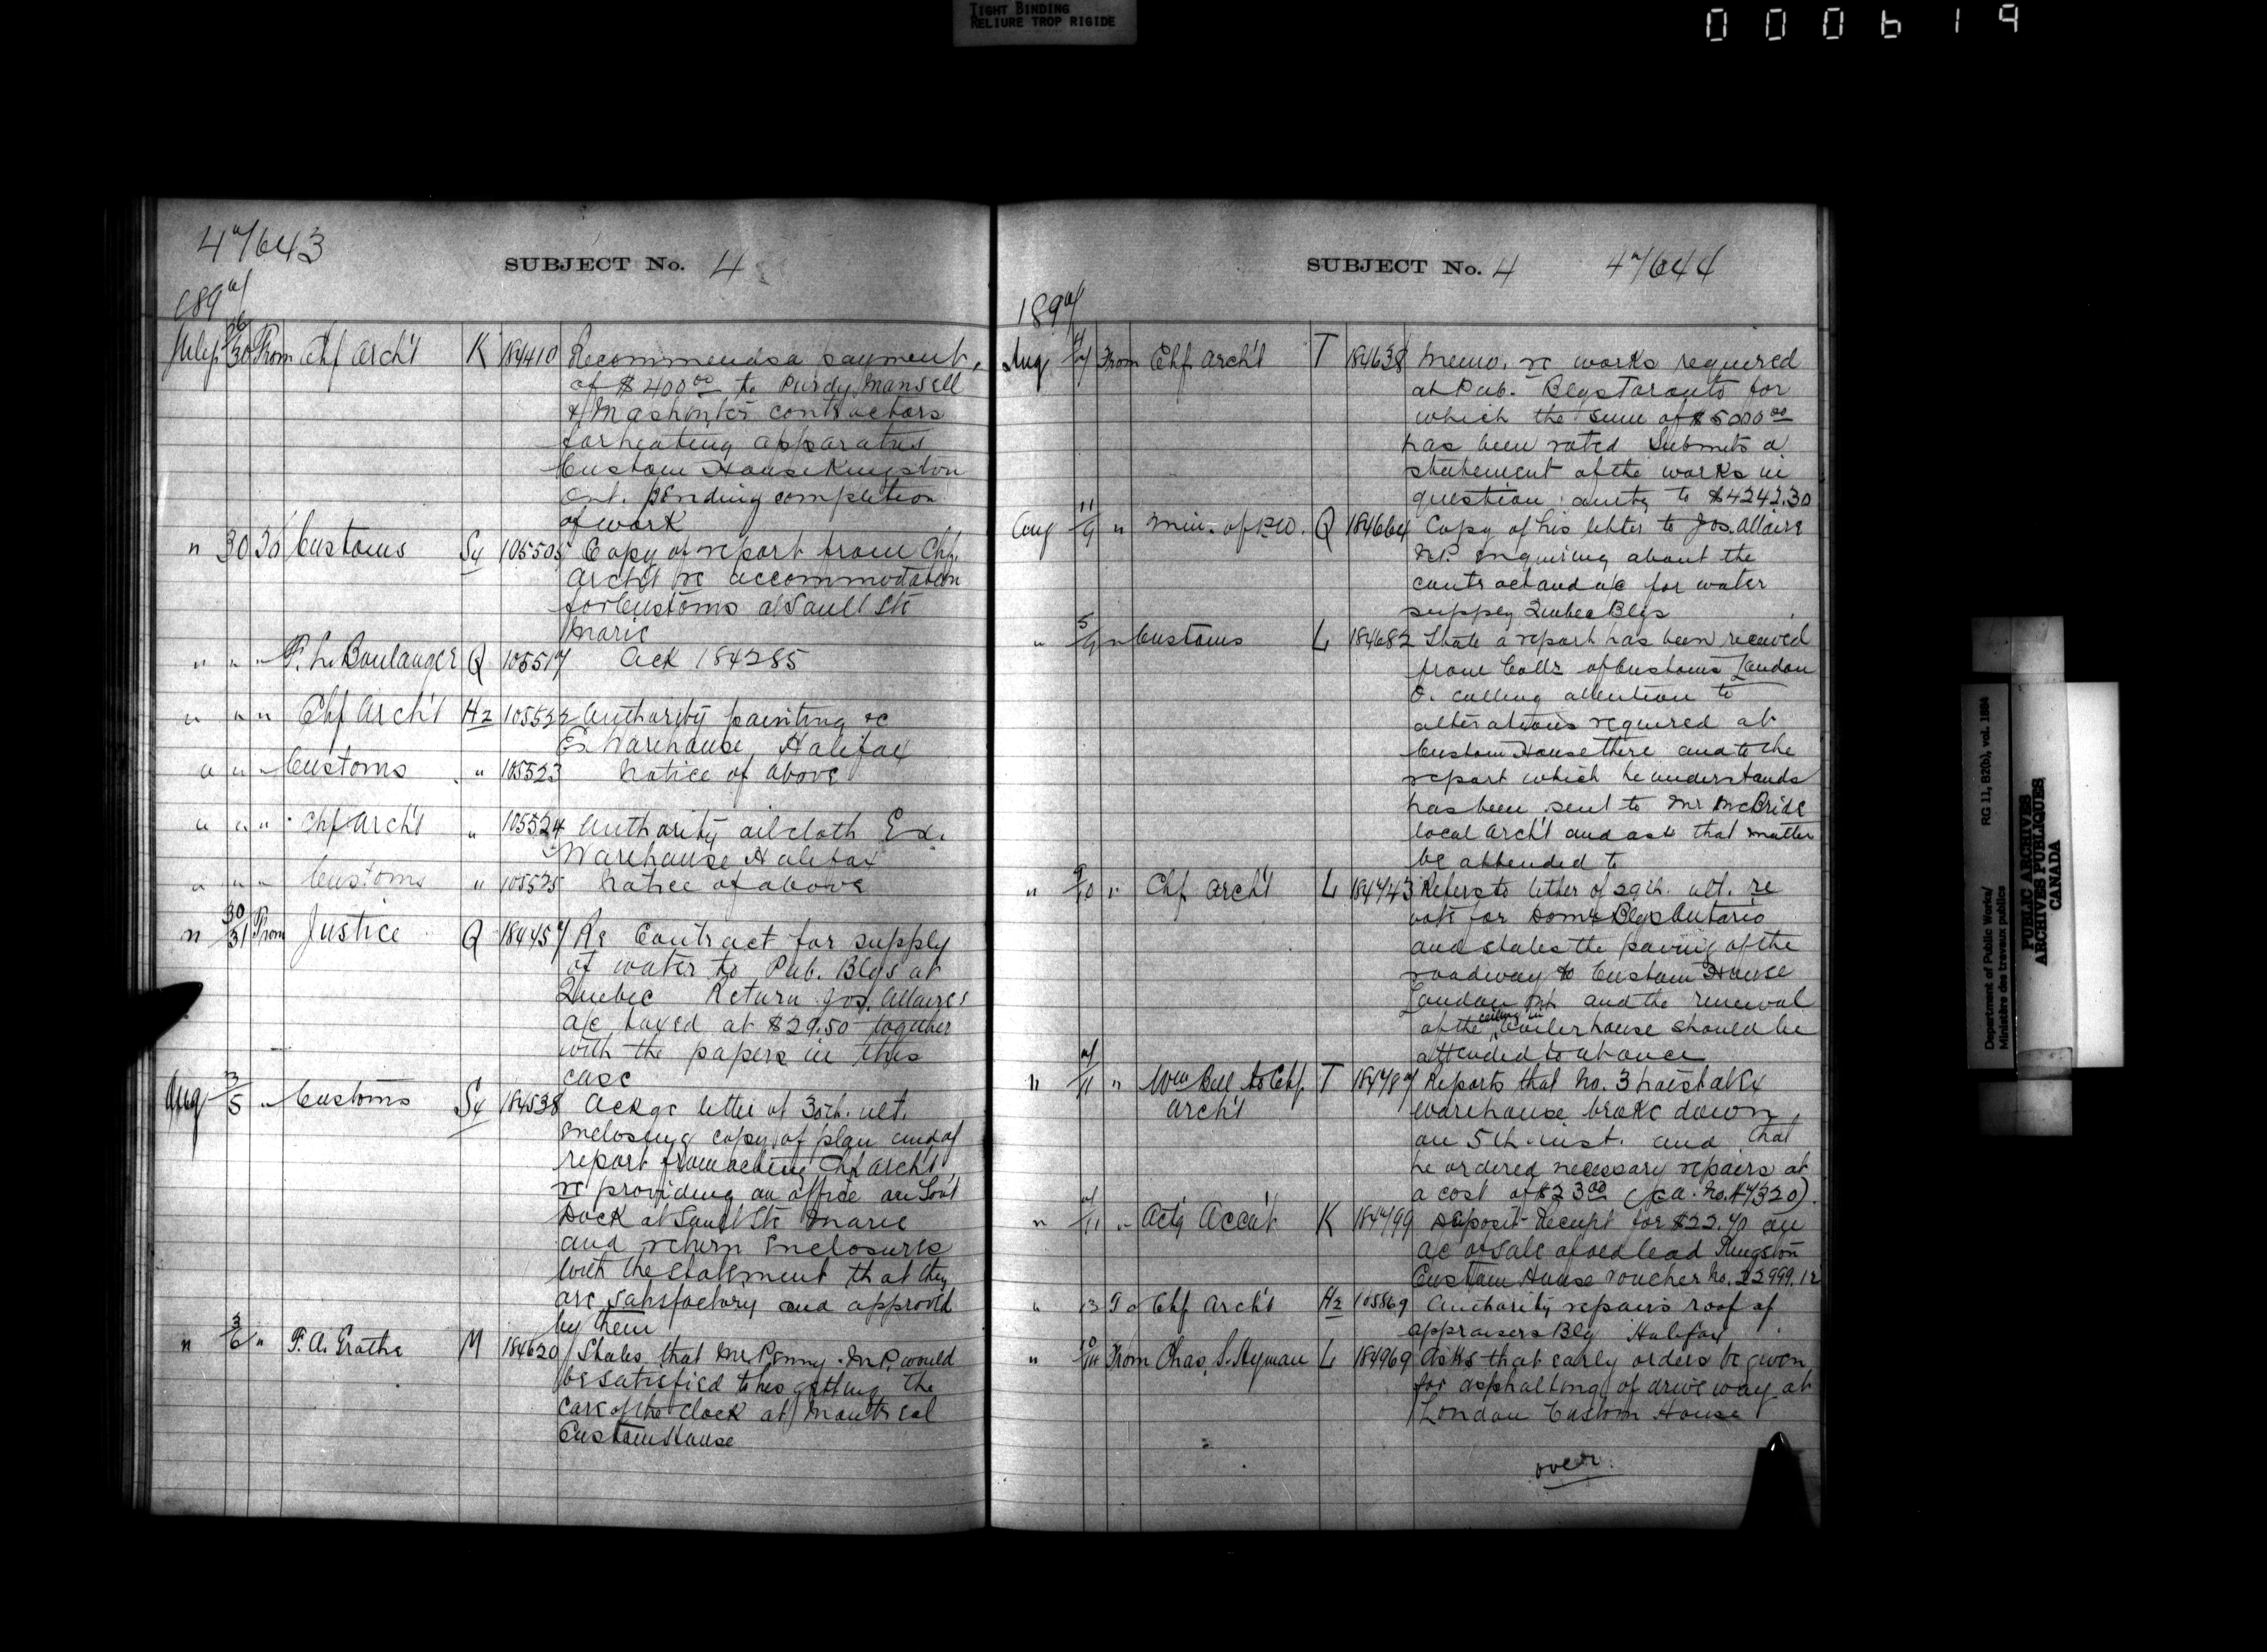 TIGHT BINDING
RELIURE TROP RIGIDE
000619
47643
SUBJECT No. 4
1897
July 26/30 From Chf Arch't K 184410 Recommends a payment
of $400.00 to Purdy, Mansell
& Mashinter contractors
for heating apparatus
Custom House Kingston
Ont. pending completion
of work
" 30 To Customs Sy 105505 Copy of report from Chf.
Arch't re accommodation
for Customs at Sault Ste
Marie
" " " P. L. Boulanger Q 105517 Ack 184285
" " " Chf Arch't Hz 105522 Authority painting &c
Ex. Warehouse, Halifax
" " " Customs " 105523 Notice of above
" " " Chf Arch't " 105524 Authority oilcloth Ex.
Warehouse Halifax
" " " Customs " 105525 Notice of above
" 30/31 From Justice Q 184457 Re Contract for supply
of water to Pub. Blgs at
Quebec Return Jos. Allaire's
a/c taxed at $29.50 together
with the papers in this
case
Aug 3/5 " Customs Sy 184538 Ackgs letter of 30th. ult.
enclosing copy of plan and of
report from acting Chf Arch't
re providing an office on Gov't
Dock at Sault Ste Marie
and return enclosures
with the statement that they
are satisfactory and approved
by them
" 3/6 " F. A. Grothe M 184620 States that Mr Penny M.P. would
be satisfied to his getting the
care of the clock at Montreal
Custom House
SUBJECT No. 4 47644
1897
Aug 4/7 From Chf Arch't T 184638 Memo. re works required
at Pub. Blgs Toronto for
which the sum of $5000.00
has been voted Submits a
statement of the works in
question amtg to $4242.30
Aug 11/9 " Min. of P.W. Q 184664 Copy of his letter to Jos. Allaire
N.P. inquiring about the
contract and a/c for water
supply Quebec Blgs
" 5/9 " Customs L 184682 State a report has been received
from Collr of Customs London
O. calling attention to
alterations required at
Custom House there and to the
report which he understands
has been sent to Mr McBride
local Arch't and ask that matter
be attended to
" 9/10 " Chf Arch't L 184743 Refers to letter of 29th. ult. re
vote for Domn Blgs Ontario
and states the paving of the
roadway to Custom House
London Ont and the renewal
of the ceiling in boiler house should be
attended to at once
" 7/11 " Wm Bell to Chf. T 184787 Reports that No. 3 hoist at Ex
Arch't warehouse broke down
on 5th. inst. and that
he ordered necessary repairs at
a cost of $23.00
" 7/11 " Actg Acc't K 184799 Deposit Receipt for $22.70 on
a/c of sale of old lead Kingston
Custom House voucher No. 22999.12
" 13 To Chf Arch't Hz 105869 Authority repairs roof of
appraisers Blg Halifax
" From Chas. S. Hyman L 184969 Asks that early orders be given
for asphalting of driveway at
London Custom House
over.
Department of Public Works/
Ministère des travaux publics
RG 11, B2(b), vol. 1884
PUBLIC ARCHIVES
ARCHIVES PUBLIQUES
CANADA